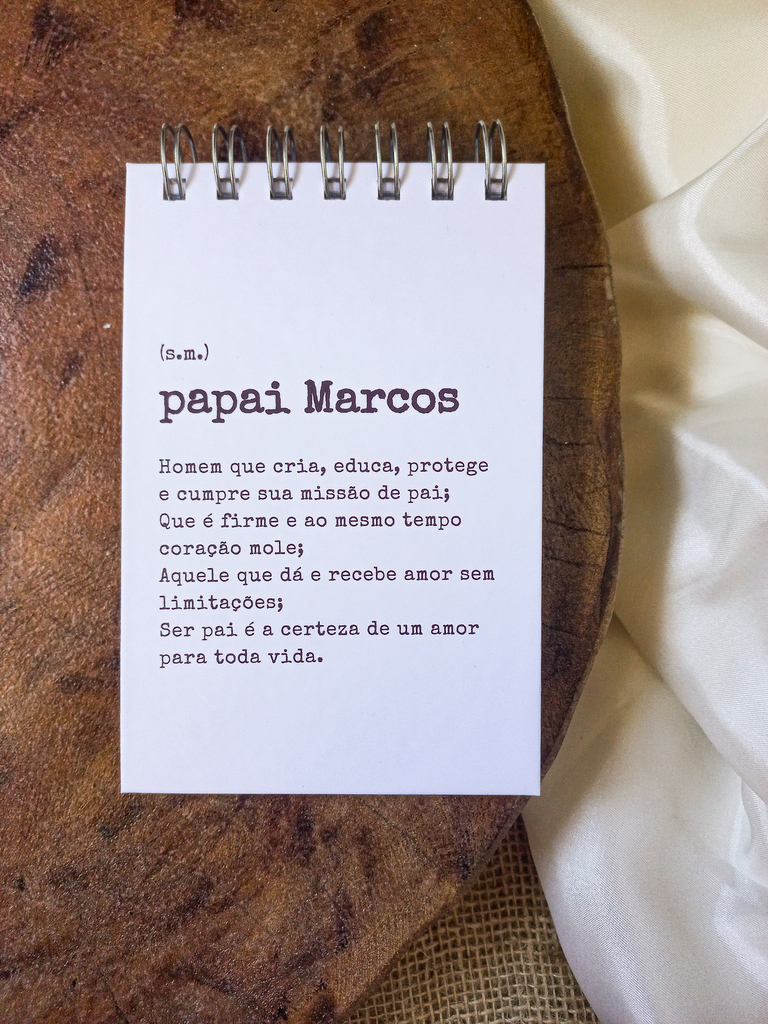 (s.m.)
papai Marcos
Homem que cria, educa, protege
e cumpre sua missão de pai;
Que é firme e ao mesmo tempo
coração mole;
Aquele que dá e recebe amor sem
limitações;
Ser pai é a certeza de um amor
para toda vida.